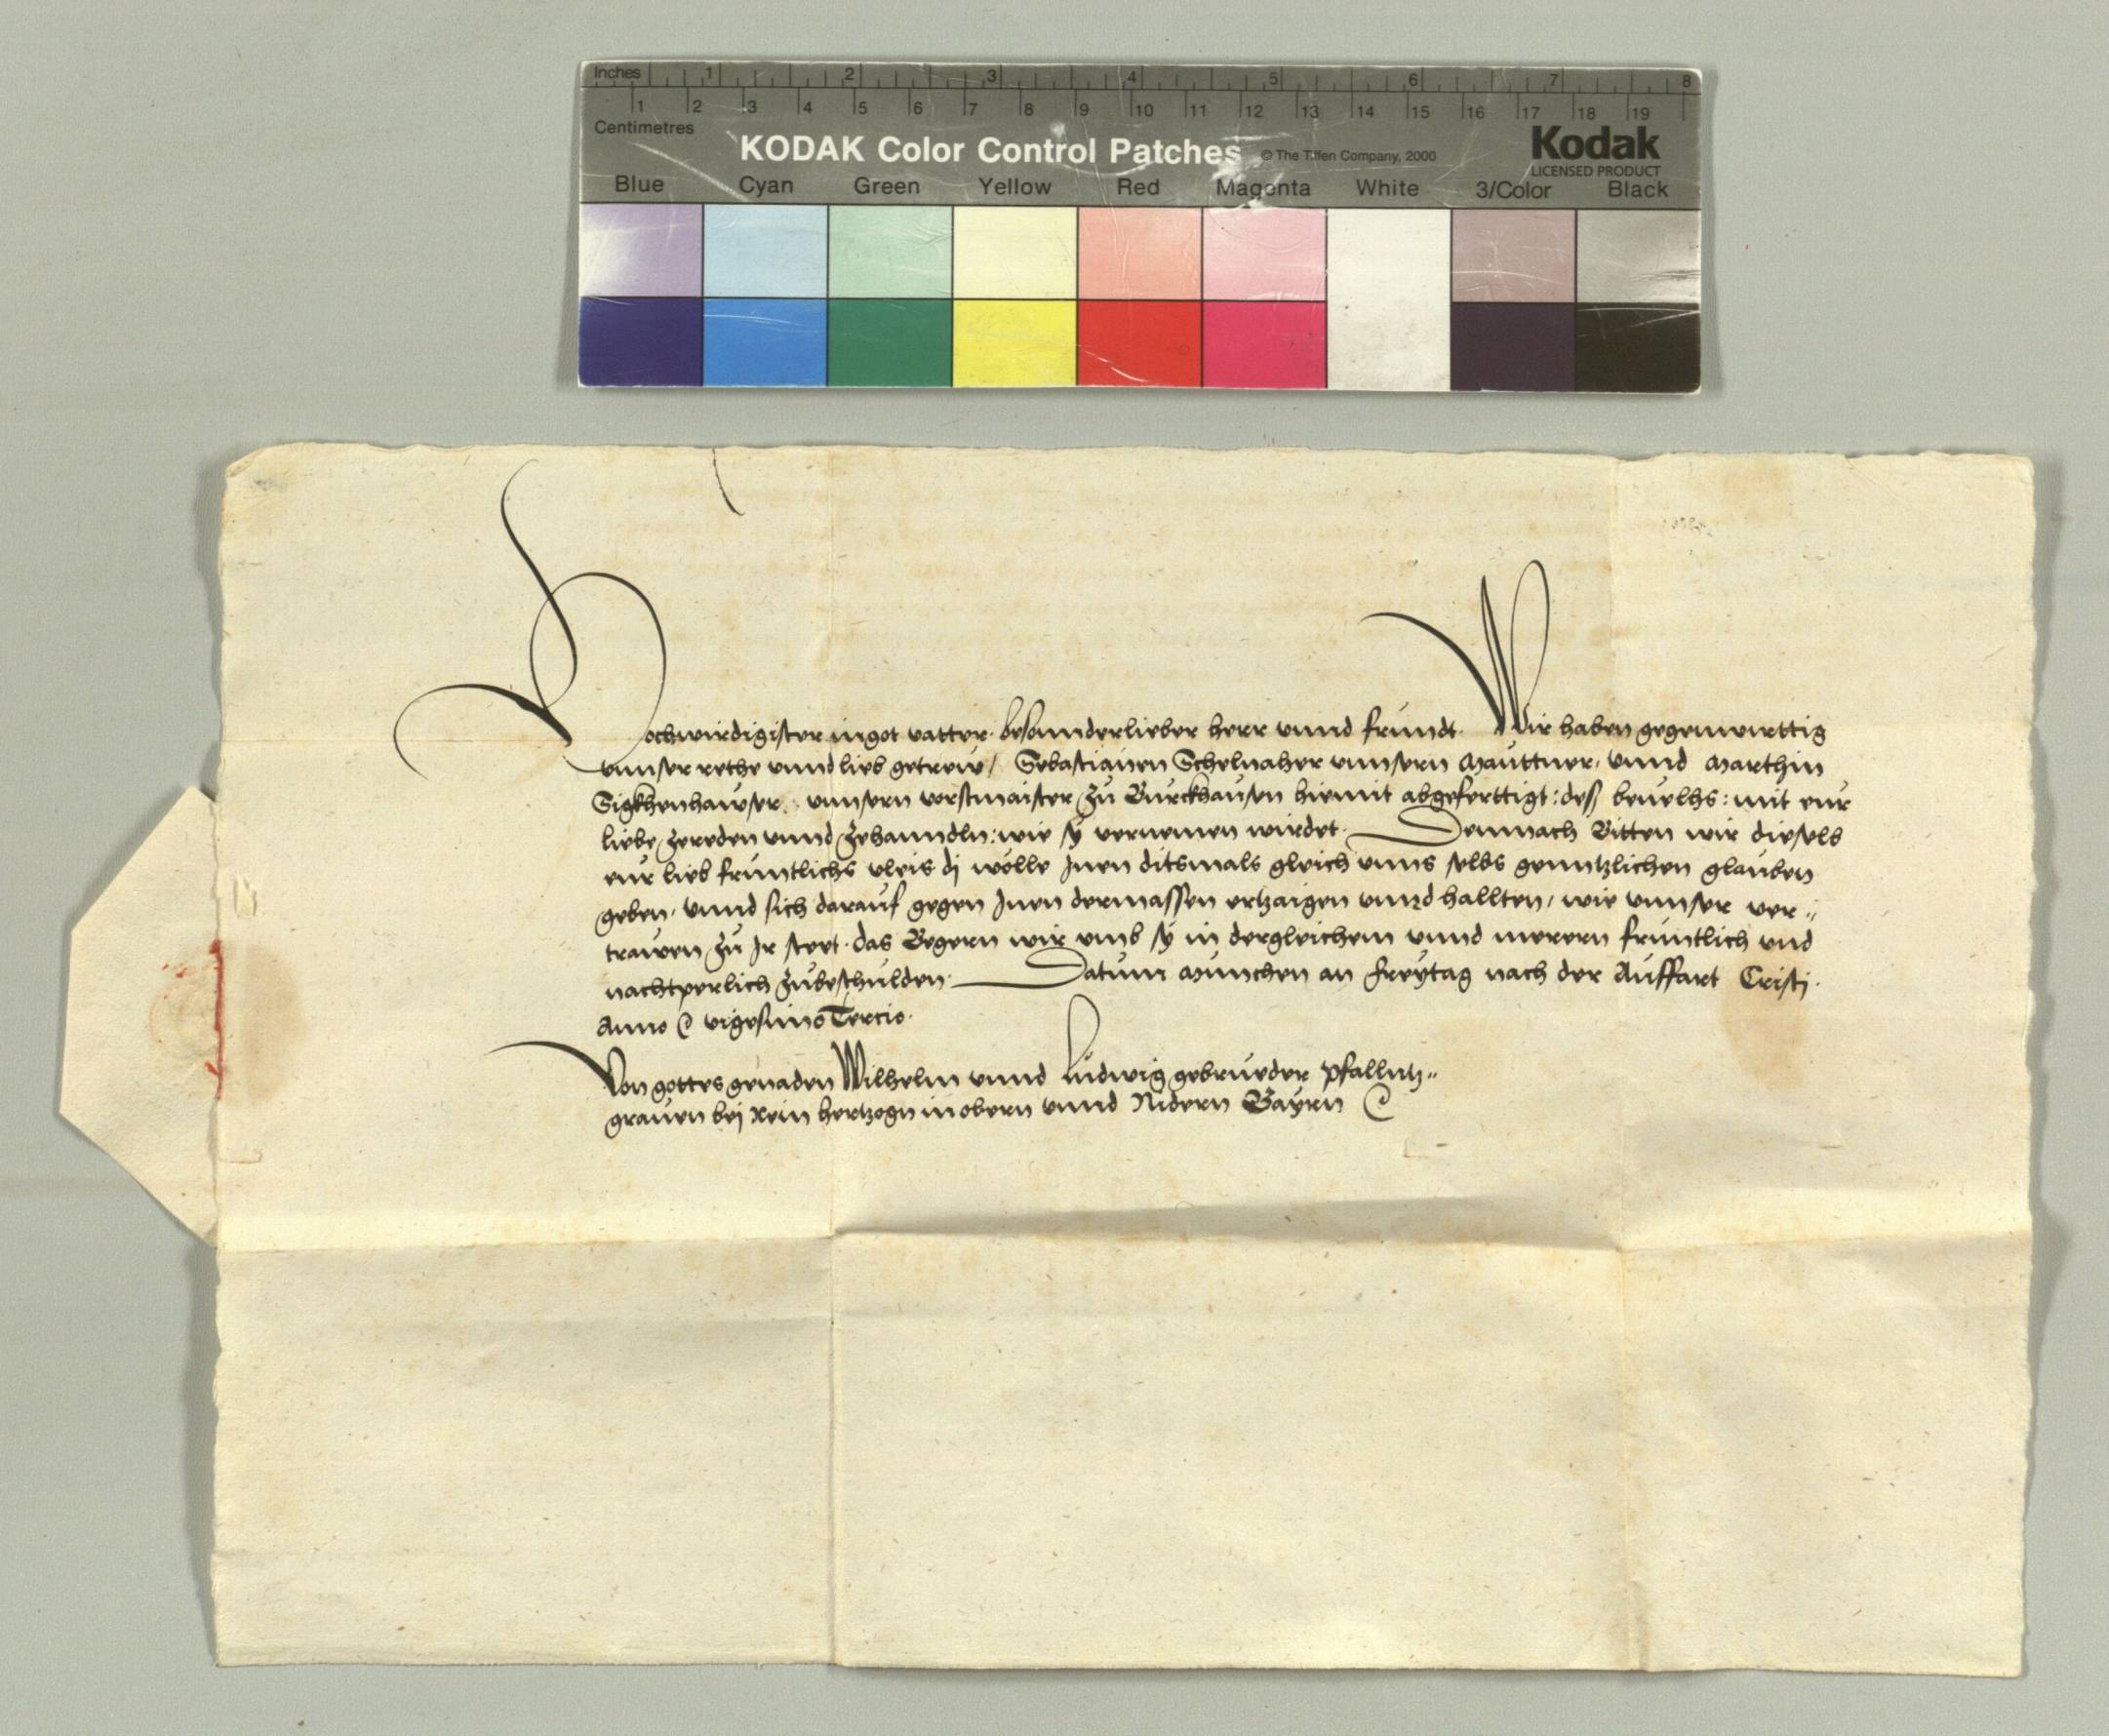 Inches 1 2 3 4 5 6 7 8
1 2 3 4 5 6 7 8 9 10 11 12 13 14 15 16 17 18 19
Centimetres
KODAK Color Control Patches © The Tiffen Company, 2000 Kodak
LICENSED PRODUCT
Blue Cyan Green Yellow Red Magenta White 3/Color Black
Hochwirdigister in got vatter. besonnderlieber herr vnnd frundt. Wir haben gegenwurttig
vnnser rethe vnnd lieb getrew/ Sebastianen Schelnaher vnnsern Mauttner, vnnd Marthin
Sigkhenhauser. vnnsern vorstmaister zu Burckhausen hiemit abgeferttigt: desß beuelhs: mit eur
liebe zereden vnnd zehanndln: wie sy vernemen wurdet. Demnach Bitten wir dieselb
eur lieb fruntlichs vleis dj wolle Jnen ditsmals gleich vnns selbs genntzlichen glauben
geben, vnnd sich darauf gegen Jnen dermassen ertzaigen vnnd hallten, wie vnnser ver„
trawen zu Jr steet. das Begern wir vmb sy in dergleichem vnnd merern fruntlich vnd
nachtperlich zubeschulden. Datum Munchen an Freytag nach der Auffart Cristj.
Anno &c vigesimo Tercio.
Von gottes genaden Wilhelm vnnd Ludwig gebrueder Pfallntz„
grauen bej Rein hertzogn in obern vnnd Nidern Bayrn &c